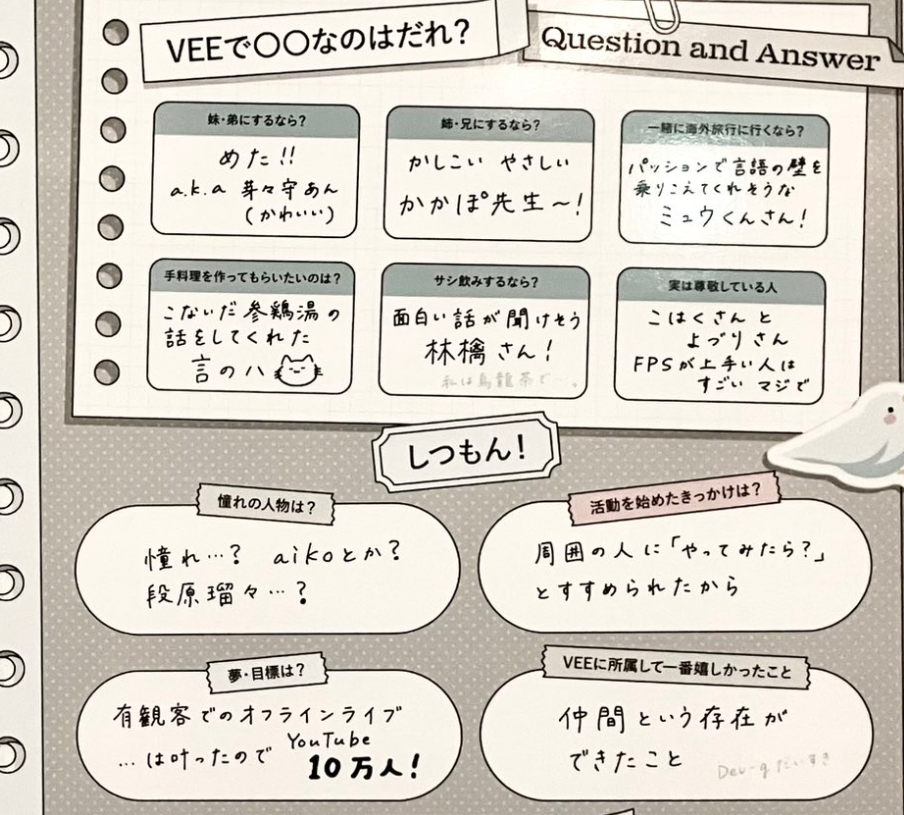 VEEで〇〇なのはだれ?
Question and Answer
妹・弟にするなら?
めた!!
a.k.a 芽々守あん
(かわいい)
姉・兄にするなら?
かしこい やさしい
かかぽ先生～!
一緒に海外旅行に行くなら?
パッションで言語の壁を
乗りこえてくれそうな
ミュウくんさん!
手料理を作ってもらいたいのは?
こないだ参鶏湯の
話をしてくれた
言のハ
サシ飲みするなら?
面白い話が聞けそう
林檎さん!
私は烏龍茶で…。
実は尊敬している人
こはくさんと
よづりさん
FPSが上手い人は
すごい マジで
しつもん!
憧れの人物は?
憧れ…? aikoとか?
段原瑠々…?
活動を始めたきっかけは?
周囲の人に「やってみたら?」
とすすめられたから
夢・目標は?
有観客でのオフラインライブ
…は叶ったので YouTube
10万人!
VEEに所属して一番嬉しかったこと
仲間という存在が
できたこと
Dev-gだいすき